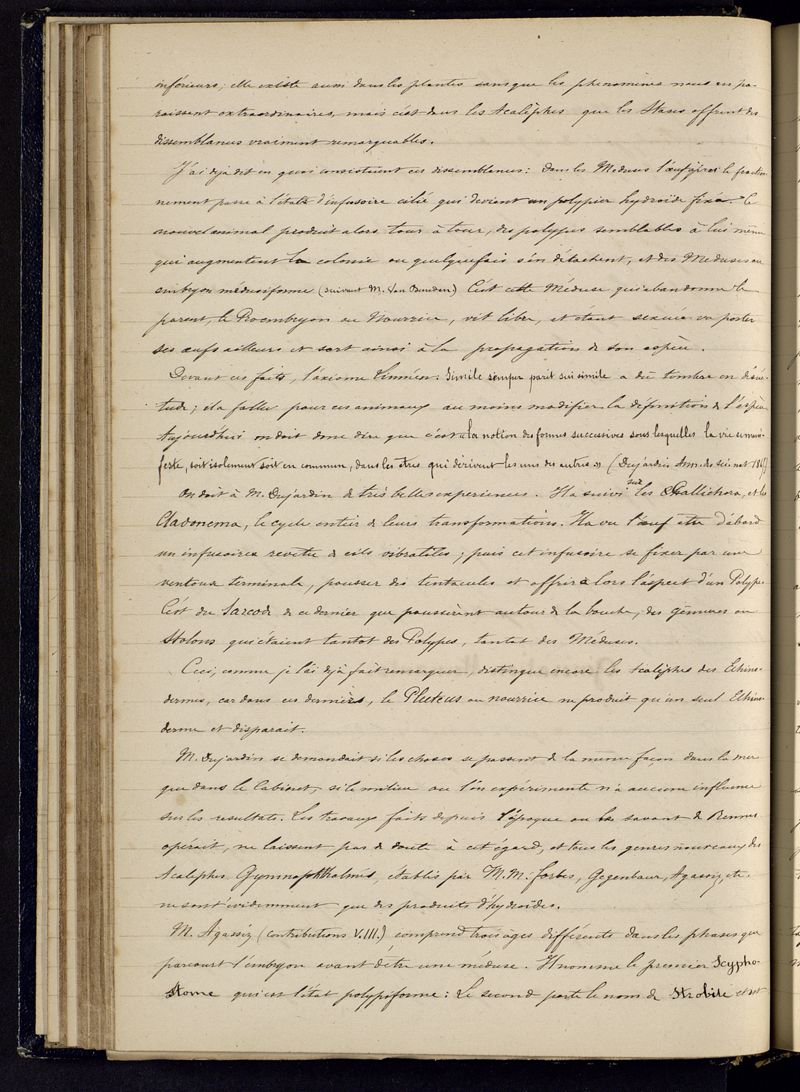 inférieurs; elle existe aussi dans les plantes sans que les phenomènes nous en pa-
raissent extraordinaires, mais c'est dans les Acalèphes que les Stases offrent des
dissemblances vraiment remarquables.
J'ai dejà dit en quoi consistaient ces dissemblances: Dans les Meduses l'œuf après le fraction-
nement passe à l'état d'infusoire cilié qui devient un polypier hydroïde fixé. le
nouvel animal produit alors tour à tour, des polypes semblables à lui même
qui augmentent la colonie ou quelquefois s'en détachent, et des Meduses ou
embryon méduséiforme (suivant M. Van Beneden) C'est cette Méduse qui abandonne le
parent, le Proembryon ou Nourrice, vit libre, et étant sexuée va porter
ses œufs ailleurs et sert ainsi à la propagation de son espèce.
Devant ces faits, l'axiome Linnéen: Simile semper parit sui simile a dû tomber en désué-
tude; il a fallu pour ces animaux au moins modifier la définition de l'espèce
Aujourd'hui on doit donc dire que c'est « la notion des formes successives sous lesquelles la vie se mani-
feste, soit isolement soit en commun, dans les êtres qui dérivent les uns des autres » (Dujardin Ann. des sci. nat.
On doit à M. Dujardin de très belles experiences. Il a suivi sur les Stallichora, et les
Cladonema, le cycle entier de leurs transformations. Il a vu l'œuf être d'abord
un infusoire revêtu de cils vibratiles; puis cet infusoire se fixer par une
ventouse terminale, pousser des tentacules et offrir alors l'aspect d'un Polype.
C'est du Sarcode de ce dernier que poussèrent autour de la bouche, des gemmes ou
Stolons qui étaient tantot des Polypes, tantot des Méduses.
Ceci, comme je l'ai dejà fait remarquer, distingue encore les Acalèphes des Echino-
dermes, car dans ces derniers, le Pluteus ou nourrice ne produit qu'un seul Echino-
derme et disparait.
M. Dujardin se demandait si les choses se passent de la même façon dans la mer
que dans le Cabinet, si le milieu ou l'on expérimente n'a aucune influence
sur les resultats. Les travaux faits depuis l'époque ou le savant de Rennes
opérait, ne laissent pas de doute à cet égard, et tous les genres nouveaux des
Acalèphes Gymnophthalmes, etablis par M.M. Forbes, Gegenbaur, Agassiz, etc.
ne sont évidemment que des produits d'hydroïdes.
M. Agassiz (Contributions V.III.) comprend trois ages différents dans les phases que
parcourt l'embryon avant d'être une méduse. Il nomme le premier Scypho-
Stome qui est l'état polypiforme: Le second porte le nom de Strobile et est